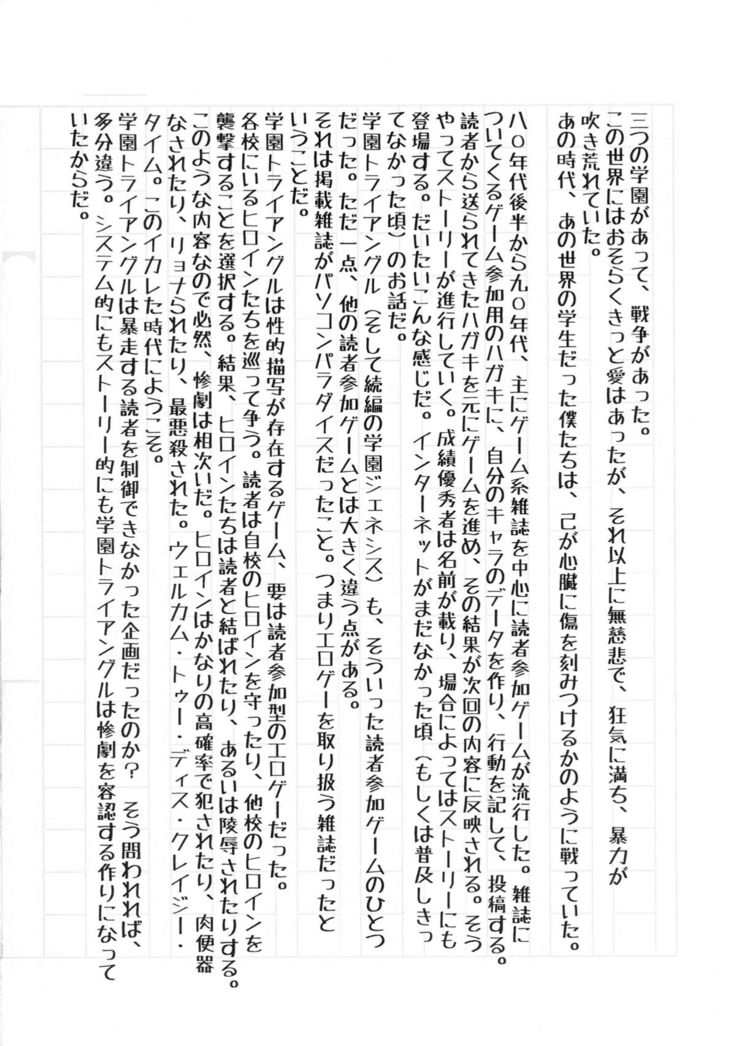 三つの学園があって、戦争があった。
この世界にはおそらくきっと愛はあったが、それ以上に無慈悲で、狂気に満ち、暴力が
吹き荒れていた。
あの時代、あの世界の学生だった僕たちは、己が心臓に傷を刻みつけるかのように戦っていた。
八〇年代後半から九〇年代、主にゲーム系雑誌を中心に読者参加ゲームが流行した。雑誌に
ついてくるゲーム参加用のハガキに、自分のキャラのデータを作り、行動を記して、投稿する。
読者から送られてきたハガキを元にゲームを進め、その結果が次回の内容に反映される。そう
やってストーリーが進行していく。成績優秀者は名前が載り、場合によってはストーリーにも
登場する。だいたいこんな感じだ。インターネットがまだなかった頃（もしくは普及しきっ
てなかった頃）のお話だ。
学園トライアングル（そして続編の学園ジェネシス）も、そういった読者参加ゲームのひとつ
だった。ただ一点、他の読者参加ゲームとは大きく違う点がある。
それは掲載雑誌がパソコンパラダイスだったこと。つまりエロゲーを取り扱う雑誌だったと
いうことだ。
学園トライアングルは性的描写が存在するゲーム、要は読者参加型のエロゲーだった。
各校にいるヒロインたちを巡って争う。読者は自校のヒロインを守ったり、他校のヒロインを
襲撃することを選択する。結果、ヒロインたちは読者と結ばれたり、あるいは陵辱されたりする。
このような内容なので必然、惨劇は相次いだ。ヒロインはかなりの高確率で犯されたり、肉便器
なされたり、リョナられたり、最悪殺された。ウェルカム・トゥー・ディス・クレイジー・
タイム。このイカレた時代にようこそ。
学園トライアングルは暴走する読者を制御できなかった企画だったのか？　そう問われれば、
多分違う。システム的にもストーリー的にも学園トライアングルは惨劇を容認する作りになって
いたからだ。